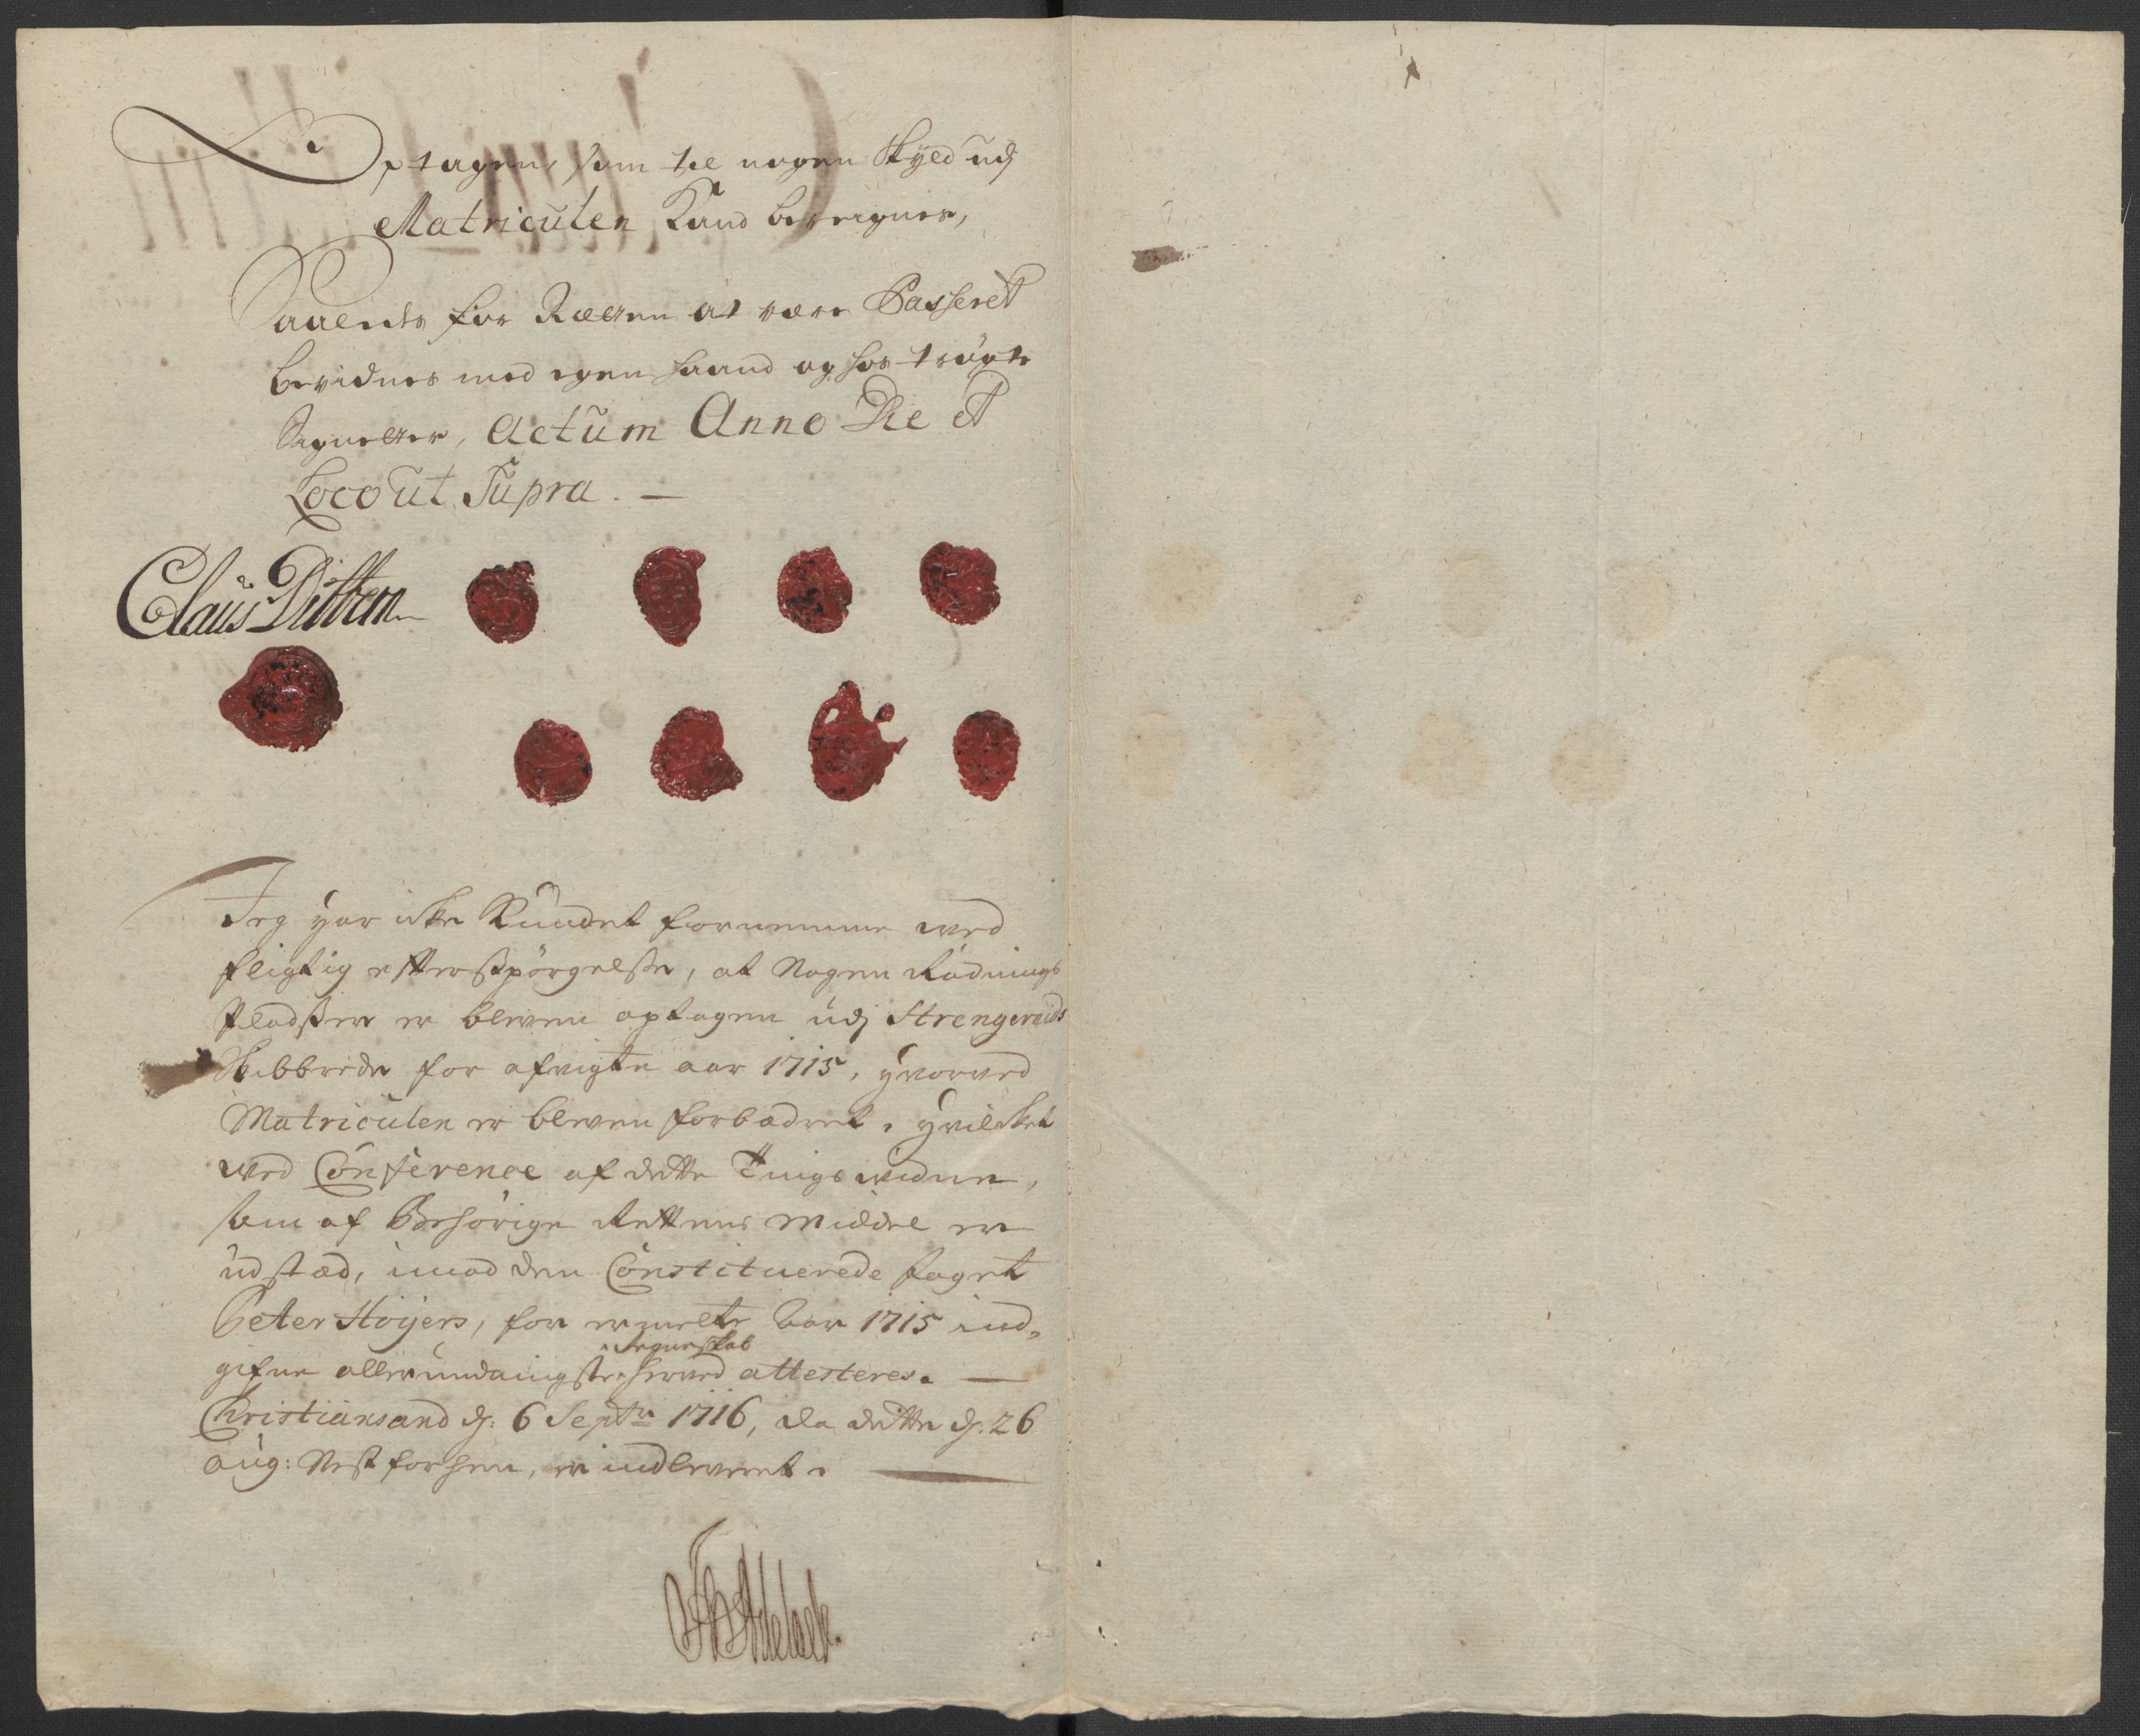 Optagen, som til nogen Skyld udj
Matriculen Kand beregnes,
Saaledis for Rætten at være Passeret
bevidnes med egen haand og hos trÿgte
Signetter, Actum Anno Die et
Loco ut Supra. —
Claus Ditten
Jeg har icke Kundet fornemme ved
fligtig efterspörgelse, at Nogen Rödnings
Pladser er bleven optagen udj Strengereids
Skibbrede for afvigte aar 1715, hvorved
Matriculen er bleven forbædret, hvilcket
ved Conference af dette Tingsvidne,
som af Behörige Rettens middel er
udstæd, imod den Constituerede foget
Peter Höyers, for ermelte Aar 1715 ind-
gifne allerunderdanigste Regenskab herved attesteres. —
Christiansand dj: 6 Septr 1716, da dette dj: 26
Aug: Nest forhen, er indleveret. —